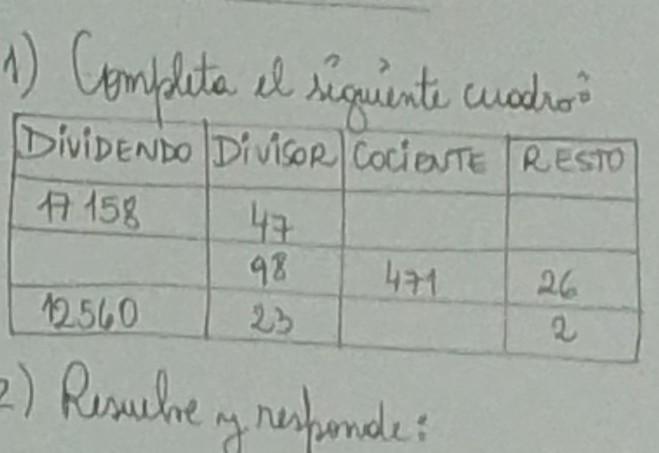 1) Completa el siguiente cuadro:
DIVIDENDO DIVISOR COCIENTE RESTO
17 158 47
98 471 26
12560 23 2
2) Resuelve y responde: